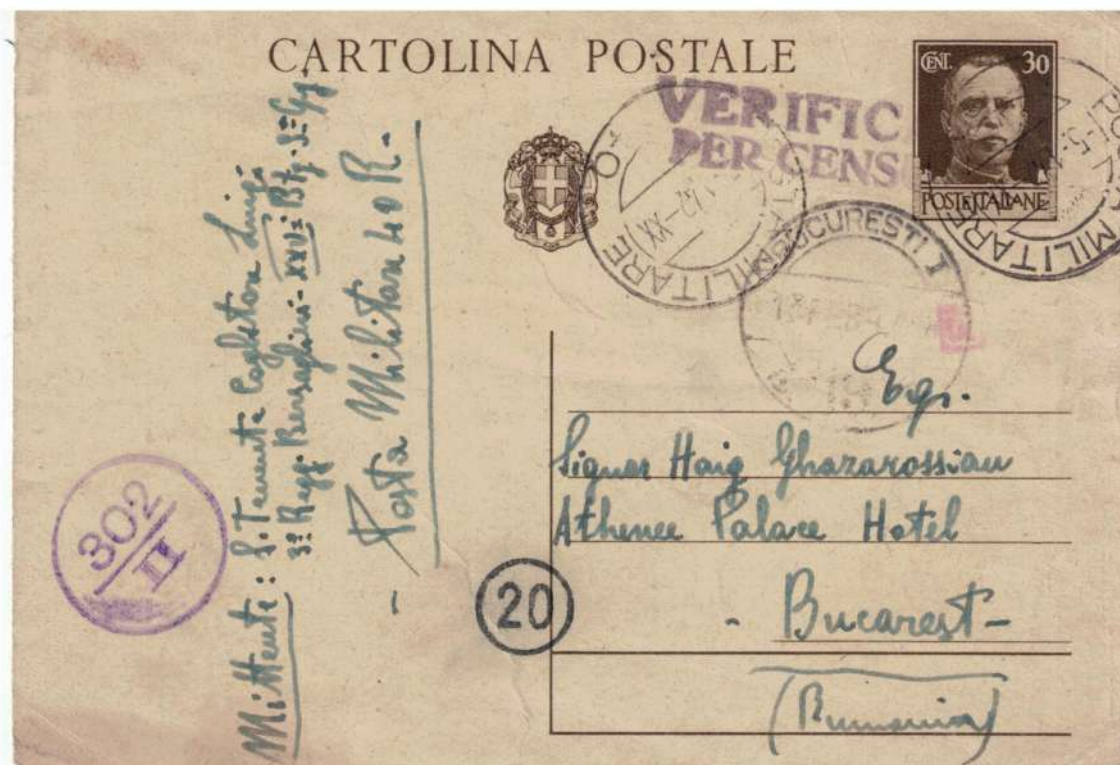 CARTOLINA POSTALE
CENT. 30
POSTE ITALIANE
VERIFIC
PER CENS
MILITARE
XX
BUCURESTI I
MILITARE
Mittente: S. Tenente Luigi
3º Regg. Bersaglieri - XXV= Btg.
Posta Militare 40 R-
302
II
20
Egr.
Signor Haig Ghazarossian
Athenee Palace Hotel
- Bucarest -
(Rumania)